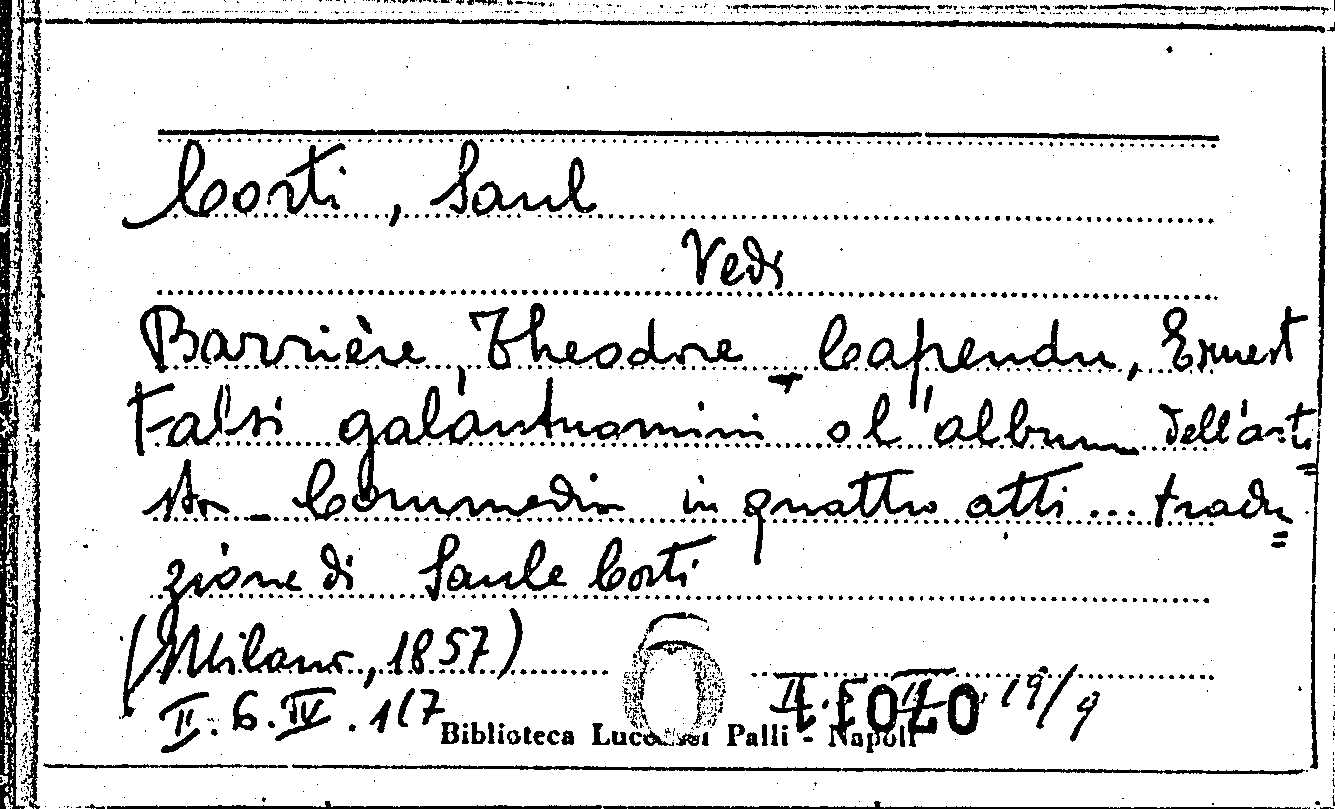 Corti, Saul
Vedi
Barrière, Theodore - Capendu, Ernest
Falsi galantuomini o l'album dell'arti
sta - Commedia in quattro atti... tradu
zione di Saule Corti
(Milano, 1857)
6
II. 6. IV. 1(7
19/9
Biblioteca Lucchesi Palli - Napoli